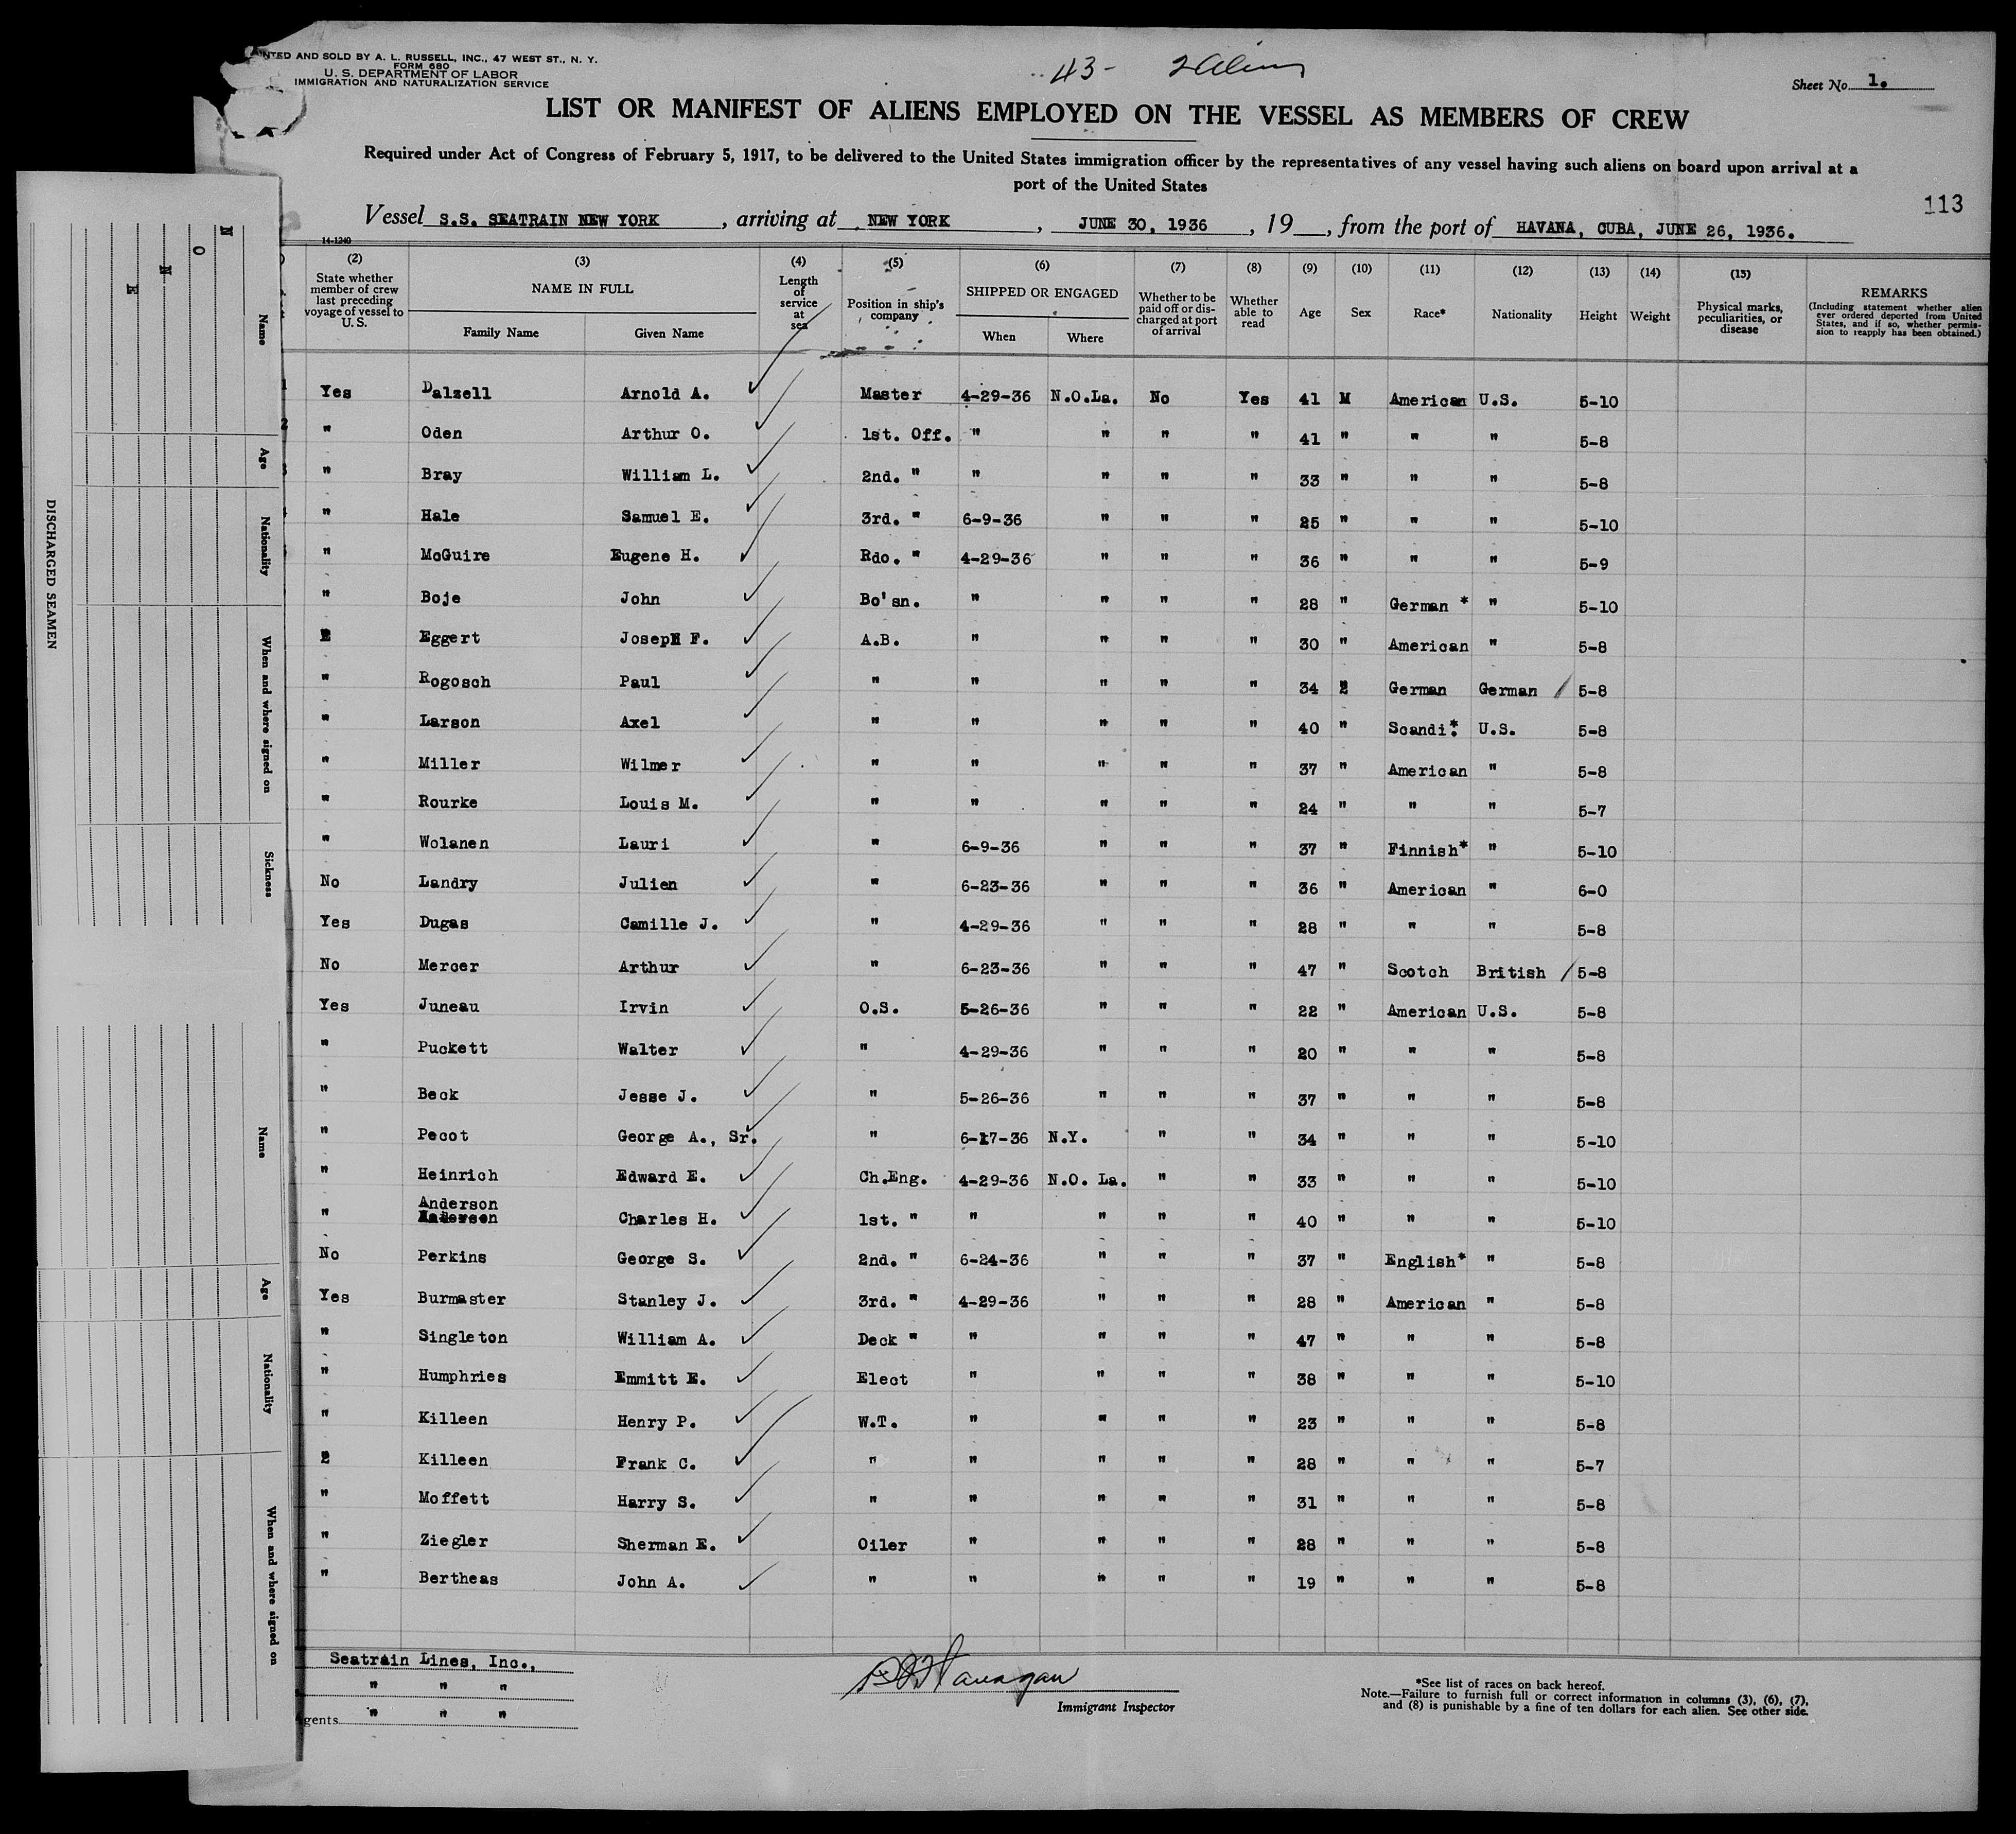 NTED AND SOLD BY A. L. RUSSELL, INC., 47 WEST ST., N. Y.
FORM 680
U. S. DEPARTMENT OF LABOR
IMMIGRATION AND NATURALIZATION SERVICE
43- 2 Aliens
Sheet No. 1.
LIST OR MANIFEST OF ALIENS EMPLOYED ON THE VESSEL AS MEMBERS OF CREW
Required under Act of Congress of February 5, 1917, to be delivered to the United States immigration officer by the representatives of any vessel having such aliens on board upon arrival at a
port of the United States
113
Vessel S.S. SEATRAIN NEW YORK, arriving at NEW YORK, JUNE 30, 1936, 19__, from the port of HAVANA, CUBA, JUNE 26, 1936.
14-1240
(2) (3) (4) (5) (6) (7) (8) (9) (10) (11) (12) (13) (14) (15)
State whether member of crew last preceding voyage of vessel to U. S. | NAME IN FULL | Family Name | Given Name | Length of service at sea | Position in ship's company | SHIPPED OR ENGAGED | When | Where | Whether to be paid off or discharged at port of arrival | Whether able to read | Age | Sex | Race* | Nationality | Height | Weight | Physical marks, peculiarities, or disease | REMARKS (Including statement whether alien ever ordered deported from United States, and if so, whether permission to reapply has been obtained.)
1 Yes Dalzell Arnold A. Master 4-29-36 N.O.La. No Yes 41 M American U.S. 5-10
2 " Oden Arthur O. 1st. Off. " " " " 41 " " " 5-8
3 " Bray William L. 2nd. " " " " " 33 " " " 5-8
4 " Hale Samuel E. 3rd. " 6-9-36 " " " 25 " " " 5-10
" McGuire Eugene H. Rdo. " 4-29-36 " " " 36 " " " 5-9
" Boje John Bo'sn. " " " " 28 " German * " 5-10
" Eggert Joseph F. A.B. " " " " 30 " American " 5-8
" Rogosch Paul " " " " " 34 " German German 5-8
" Larson Axel " " " " " 40 " Scandi.* U.S. 5-8
" Miller Wilmer " " " " " 37 " American " 5-8
" Rourke Louis M. " " " " " 24 " " " 5-7
" Wolanen Lauri " 6-9-36 " " " 37 " Finnish* " 5-10
No Landry Julien " 6-23-36 " " " 36 " American " 6-0
Yes Dugas Camille J. " 4-29-36 " " " 28 " " " 5-8
No Mercer Arthur " 6-23-36 " " " 47 " Scotch British 5-8
Yes Juneau Irvin O.S. 5-26-36 " " " 22 " American U.S. 5-8
" Puckett Walter " 4-29-36 " " " 20 " " " 5-8
" Beck Jesse J. " 5-26-36 " " " 37 " " " 5-8
" Pecot George A., Sr. " 6-17-36 N.Y. " " 34 " " " 5-10
" Heinrich Edward E. Ch.Eng. 4-29-36 N.O. La. " " 33 " " " 5-10
" Anderson Charles H. 1st. " " " " " 40 " " " 5-10
No Perkins George S. 2nd. " 6-24-36 " " " 37 " English* " 5-8
Yes Burmaster Stanley J. 3rd. " 4-29-36 " " " 28 " American " 5-8
" Singleton William A. Deck " " " " " 47 " " " 5-8
" Humphries Emmitt E. Elect " " " " 38 " " " 5-10
" Killeen Henry P. W.T. " " " " 23 " " " 5-8
" Killeen Frank C. " " " " " 28 " " " 5-7
" Moffett Harry S. " " " " " 31 " " " 5-8
" Ziegler Sherman E. Oiler " " " " 28 " " " 5-8
" Bertheas John A. " " " " " 19 " " " 5-8
Seatrain Lines, Inc.,
" " "
gents " " "
Immigrant Inspector
*See list of races on back hereof.
Note.—Failure to furnish full or correct information in columns (3), (6), (7),
and (8) is punishable by a fine of ten dollars for each alien. See other side.
DISCHARGED SEAMEN
Name
Age
Nationality
When and where signed on
Sickness
Name
Age
Nationality
When and where signed on
N
O
N
E